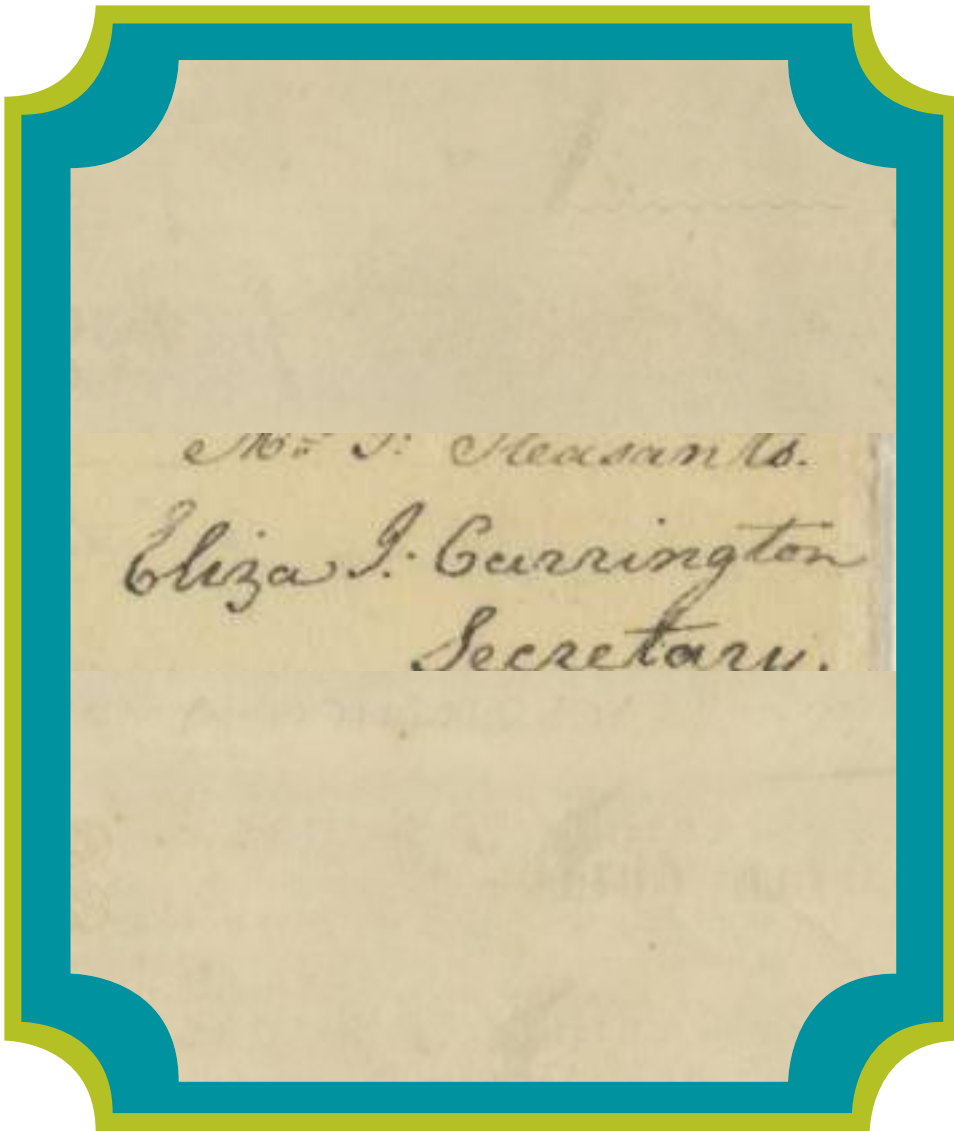 Mrs J: Pleasants.
Eliza J. Carrington
Secretary.